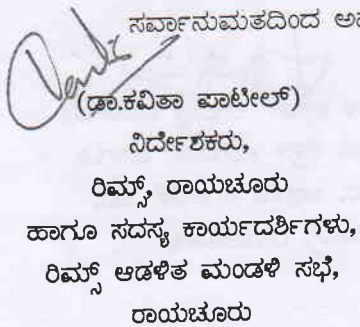 ಸರ್ವಾನುಮತದಿಂದ
(ಡಾ.ಕವಿತಾ ಪಾಟೀಲ್)
ನಿರ್ದೇಶಕರು,
ರಿಮ್ಸ್, ರಾಯಚೂರು
ಹಾಗೂ ಸದಸ್ಯ ಕಾರ್ಯದರ್ಶಿಗಳು,
ರಿಮ್ಸ್ ಆಡಳಿತ ಮಂಡಳಿ ಸಭೆ,
ರಾಯಚೂರು